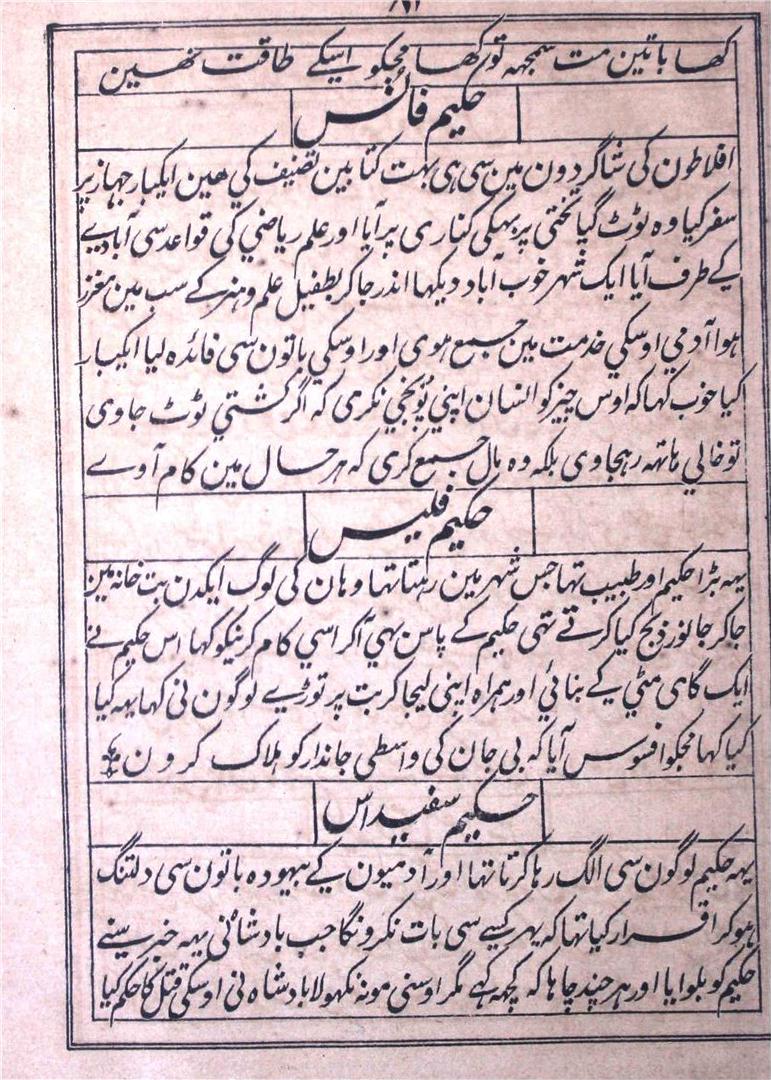 کہا باتین مت سمجھہ تون کہا مجکو اسکے طاقت نہین
حکیم فائس
افلاطون کی شاگردون مین سی ہی بہت کتابین تصنیف کي ہین ایکبار جہاز پر
سفر کیا وہ ٹوٹ گیا تختی پر بہکی کناری پر آیا اور علم ریاضي کی قواعد سی آبادیے
کے طرف آیا ایک شہر خوب آباد دیکہا اندر جاکر بطفیل علم وہنر کے سب مین معزز
ہوا آدمي اوسکي خدمت مین جمع ہوی اور اوسکي باتون سی فائدہ لیا ایکبار
کیا خوب کہا کہ اوس چیز کو انسان اپني پونجي نکری کہ اگر کشتي ٹوٹ جاوی
تو خالي ہاتہہ رہجاوی بلکہ وہ مال جمع کری کہ ہر حال مین کام آوے
حکیم فلیس
یہہ بڑا حکیم اور طبیب تہا جس شہر مین رہتا تہا وہان کی لوگ ایکدن بت خانہ مین
جاکر جانور ذبح کیا کرتے تہی حکیم کے پاس بہي آکر اسي کام کرنیکو کہا اس حکیم نے
ایک گاہی مٹي کے بنائي اور ہمراہ اپنی لیجاکر بت پر توڑیے لوگون نی کہا یہہ کیا
کیا کہا مجکو افسوس آیا کہ بی جان کی واسطی جاندار کو ہلاک کرون
حکیم سفیداس
یہہ حکیم لوگون سی الگ رہا کرتا تہا اور آدمیون کے بیہودہ باتون سی دلتنگ
ہوکر اقرار کیا تہا کہ پہر کسے سی بات نکرونگا جب بادشاہ نی یہہ خبر سنے
حکیم کو بلوایا اور ہر چند چاہا کہ کچہہ کہے مگر اوسنی مونہ نکہولا بادشاہ نی اوسکي قتل کا حکم کیا